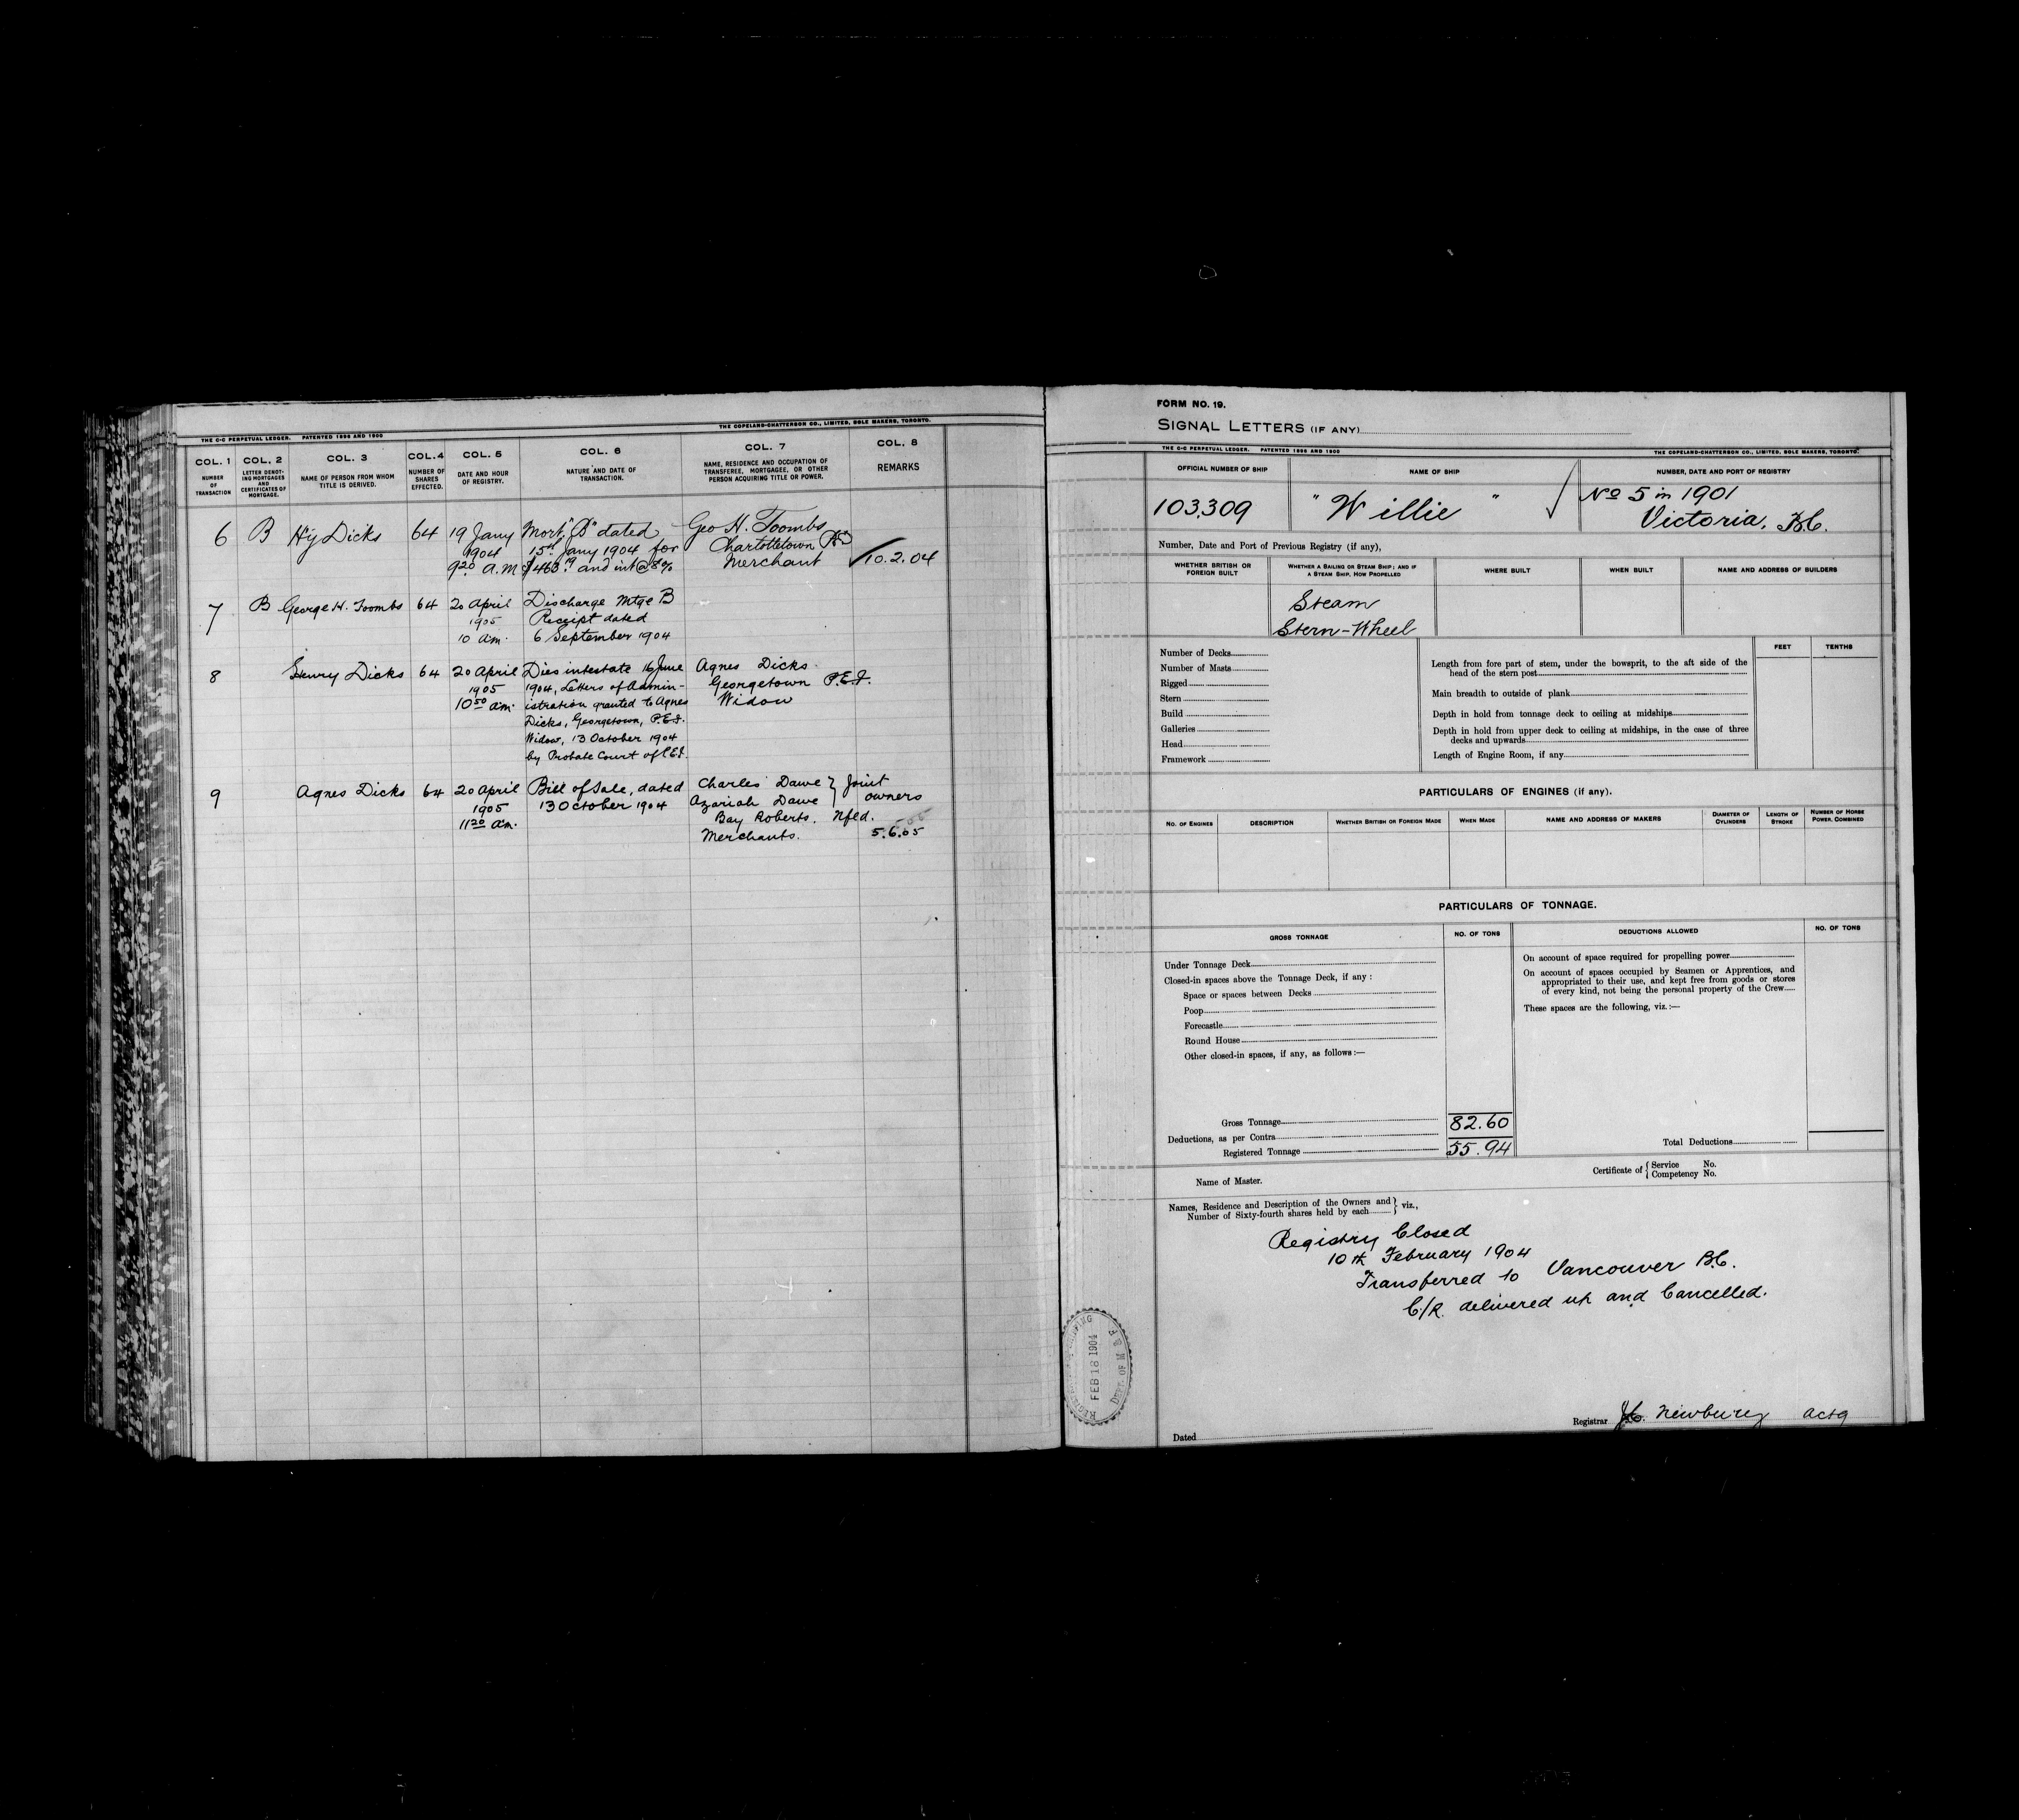 THE C-C PERPETUAL LEDGER. PATENTED 1896 AND 1900 THE COPELAND-CHATTERSON CO., LIMITED, SOLE MAKERS, TORONTO.
COL. 1 COL. 2 COL. 3 COL. 4 COL. 5 COL. 6 COL. 7 COL. 8
NUMBER OF TRANSACTION
LETTER DENOTING MORTGAGES AND CERTIFICATES OF MORTGAGE.
NAME OF PERSON FROM WHOM TITLE IS DERIVED.
NUMBER OF SHARES EFFECTED.
DATE AND HOUR OF REGISTRY.
NATURE AND DATE OF TRANSACTION.
NAME, RESIDENCE AND OCCUPATION OF TRANSFEREE, MORTGAGEE, OR OTHER PERSON ACQUIRING TITLE OR POWER.
REMARKS
6 B Hy Dicks 64 19 Jany Mort. "B" dated Geo H. Toombs
1904 15th Jany 1904 for Charlottetown
9.20 A.M $463 and int @ 8% Merchant 10.2.04
7 B George H. Toombs 64 20 April Discharge Mtge B
1905 Receipt dated
10 am. 6 September 1904
8 Henry Dicks 64 20 April Dies intestate 16 June Agnes Dicks
1905 1904, Letters of Admin- Georgetown P.E.I.
10 50 am. istration granted to Agnes Widow
Dicks, Georgetown, P.E.I.
Widow, 13 October 1904
by Probate Court of P.E.I.
9 Agnes Dicks 64 20 April Bill of Sale, dated Charles Dawe } Joint
1905 13 October 1904 Azariah Dawe owners
11 20 am. Bay Roberts, Nfld.
Merchants. 5.6.05
FORM NO. 19.
SIGNAL LETTERS (IF ANY)
THE C-C PERPETUAL LEDGER. PATENTED 1896 AND 1900 THE COPELAND-CHATTERSON CO., LIMITED, SOLE MAKERS, TORONTO.
OFFICIAL NUMBER OF SHIP NAME OF SHIP NUMBER, DATE AND PORT OF REGISTRY
103,309 "Willie" No 5 in 1901
Victoria, B.C.
Number, Date and Port of Previous Registry (if any),
WHETHER BRITISH OR FOREIGN BUILT
WHETHER A SAILING OR STEAM SHIP; AND IF A STEAM SHIP, HOW PROPELLED
WHERE BUILT WHEN BUILT NAME AND ADDRESS OF BUILDERS
Steam
Stern-Wheel
FEET TENTHS
Number of Decks
Number of Masts
Rigged
Stern
Build
Galleries
Head
Framework
Length from fore part of stem, under the bowsprit, to the aft side of the
head of the stern post
Main breadth to outside of plank
Depth in hold from tonnage deck to ceiling at midships
Depth in hold from upper deck to ceiling at midships, in the case of three
decks and upwards
Length of Engine Room, if any
PARTICULARS OF ENGINES (if any).
NO. OF ENGINES DESCRIPTION WHETHER BRITISH OR FOREIGN MADE WHEN MADE NAME AND ADDRESS OF MAKERS DIAMETER OF CYLINDERS LENGTH OF STROKE NUMBER OF HORSE POWER, COMBINED
PARTICULARS OF TONNAGE.
GROSS TONNAGE NO. OF TONS DEDUCTIONS ALLOWED NO. OF TONS
Under Tonnage Deck
Closed-in spaces above the Tonnage Deck, if any :
Space or spaces between Decks
Poop
Forecastle
Round House
Other closed-in spaces, if any, as follows :—
On account of space required for propelling power
On account of spaces occupied by Seamen or Apprentices, and
appropriated to their use, and kept free from goods or stores
of every kind, not being the personal property of the Crew
These spaces are the following, viz. :—
Gross Tonnage 82.60
Deductions, as per Contra
Registered Tonnage 55.94
Total Deductions
Name of Master.
Certificate of { Service No.
Competency No.
Names, Residence and Description of the Owners and } viz.,
Number of Sixty-fourth shares held by each
Registry Closed
10th February 1904
Transferred to Vancouver B.C.
C/R. delivered up and Cancelled.
FEB 18 1904
DEPT. OF M & F
Registrar Newbury actg
Dated